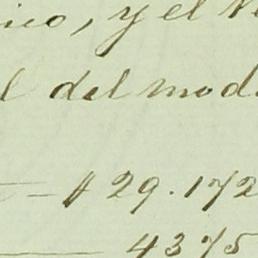 ico, y el
l del mod
— $29.172
— 4375